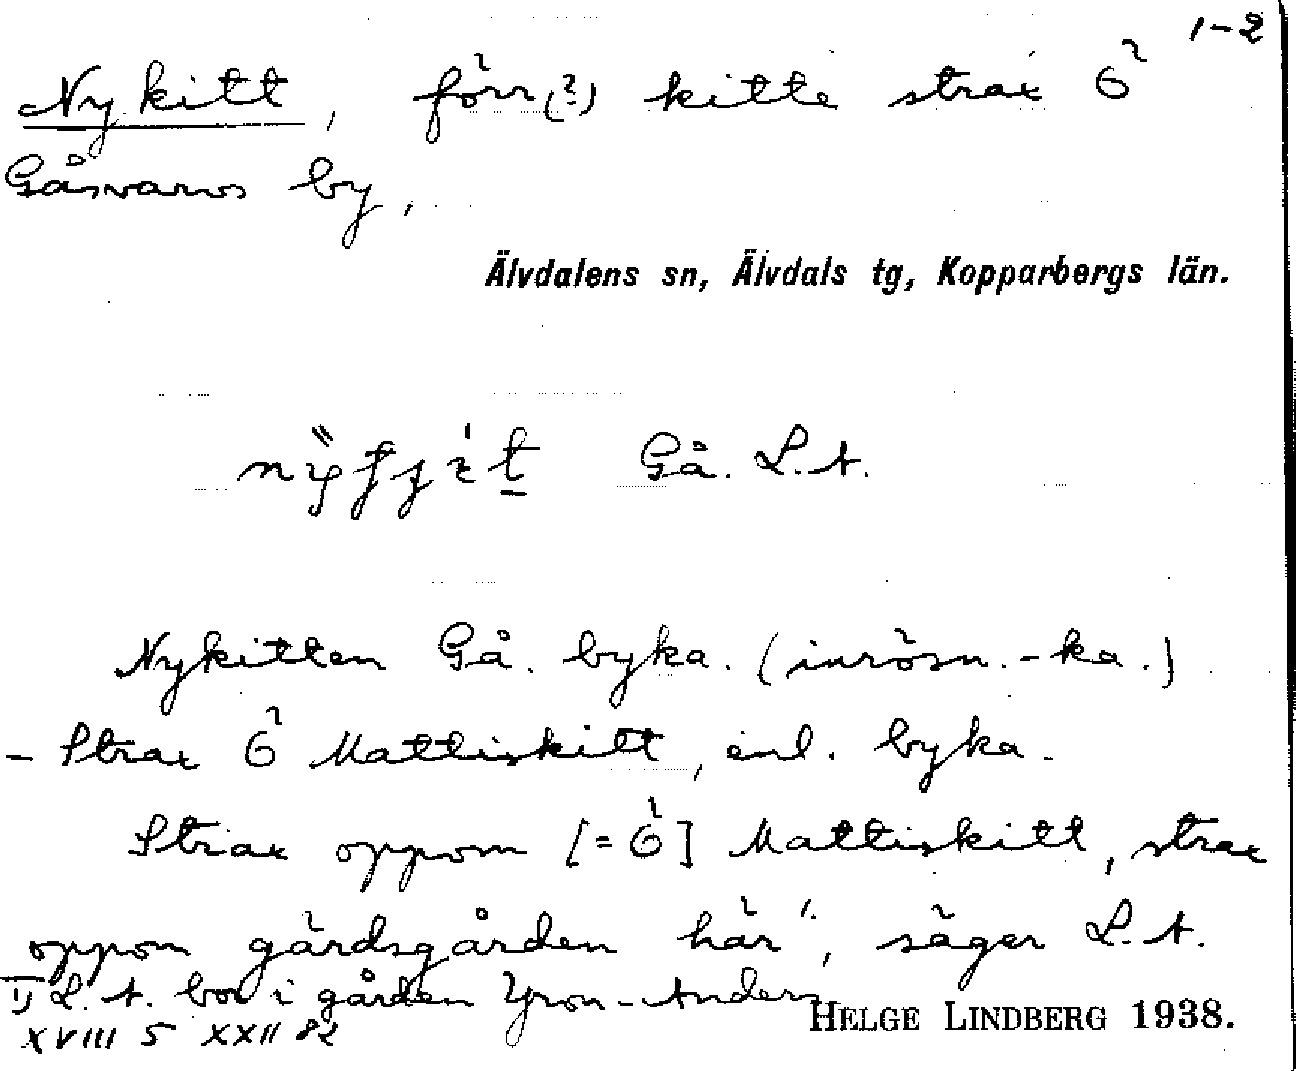 1-2
Nykitt, förr(?) kitte strax Ö
Gåsvarvs by,
Älvdalens sn, Älvdals tg, Kopparbergs län.
Gå. L.A.
Nykitten Gå. byka. (inrösn.-ka.)
- Strax Ö Mattiskitt, enl. byka.
Strax oppom [=Ö] Mattiskitt, strax
oppom gärdsgården här¹⁾, säger L.A.
1) L.A. bor i gården -Anders
HELGE LINDBERG 1938.
XVIII 5 XXII 82